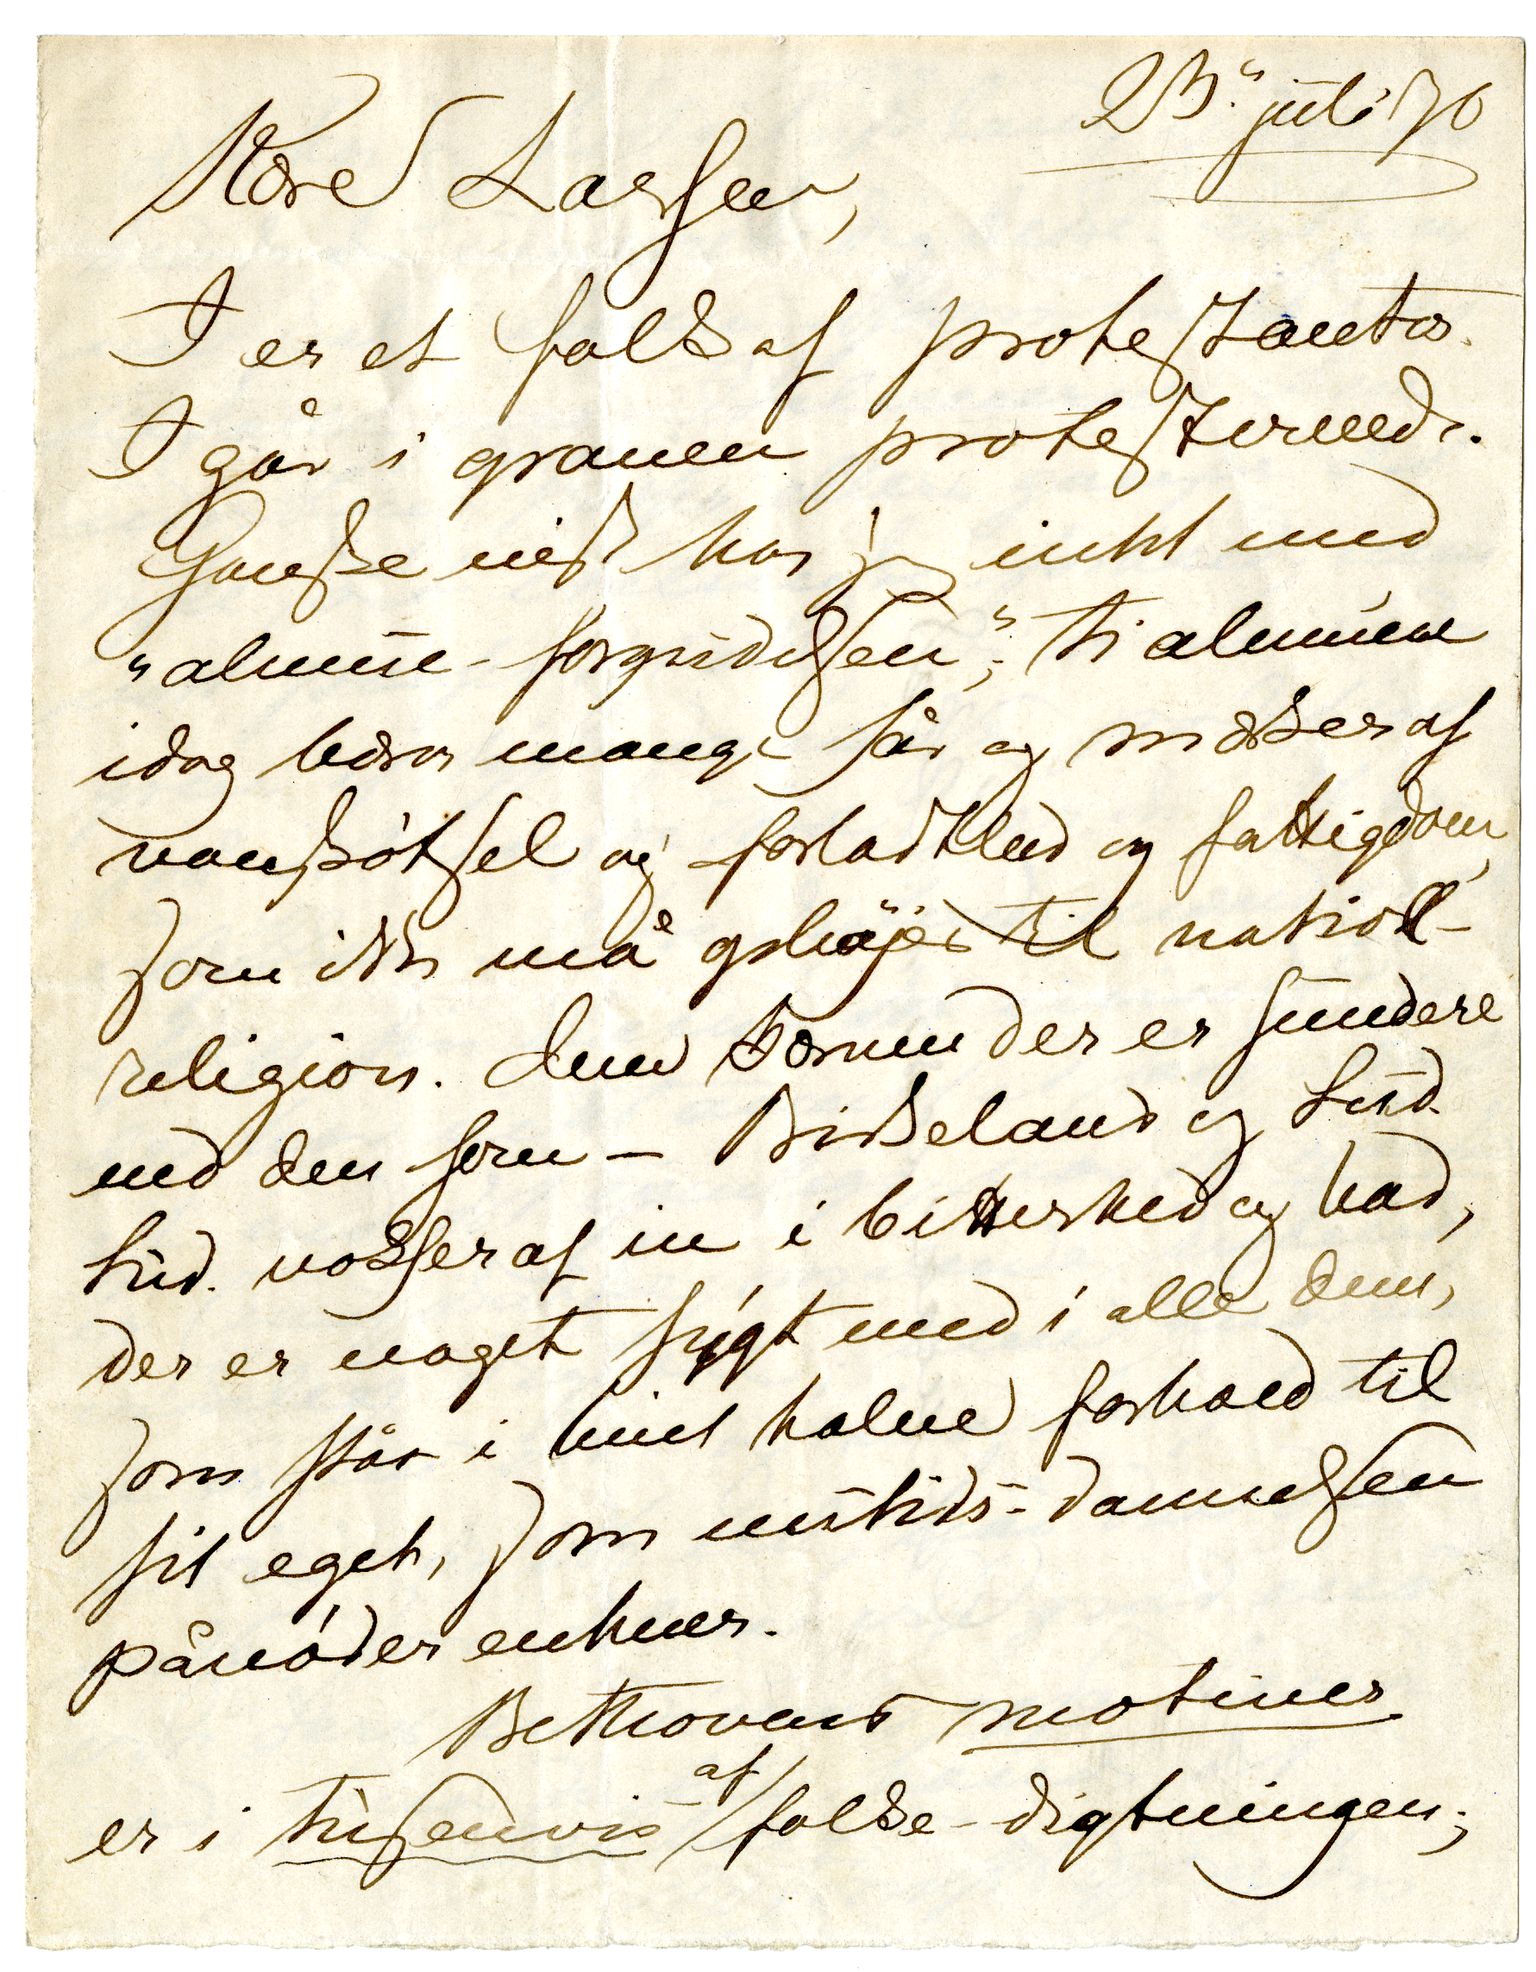 23. juli 76
Kære Larsen,
I er et folk af protestanter.
I går i graven protesterende.
Ganske vist har jeg intet med
"almue-forgudelsen"; ti almuen
idag bærer mange sår og mærker af
vanskøtsel og forladthed og fattigdom,
som ikke må ophøjes til national-
religion. Den kærne der er sundere
end den som – Birkeland og
tid. vokser af in i bitterhed og had,
der er noget sygt med i alle dem,
som står i hint halve forhold til
sit eget, som nutids-dannelsen
pånøder enhver.
Bethovens motiver
er i tusenvis af folke-digtningen;